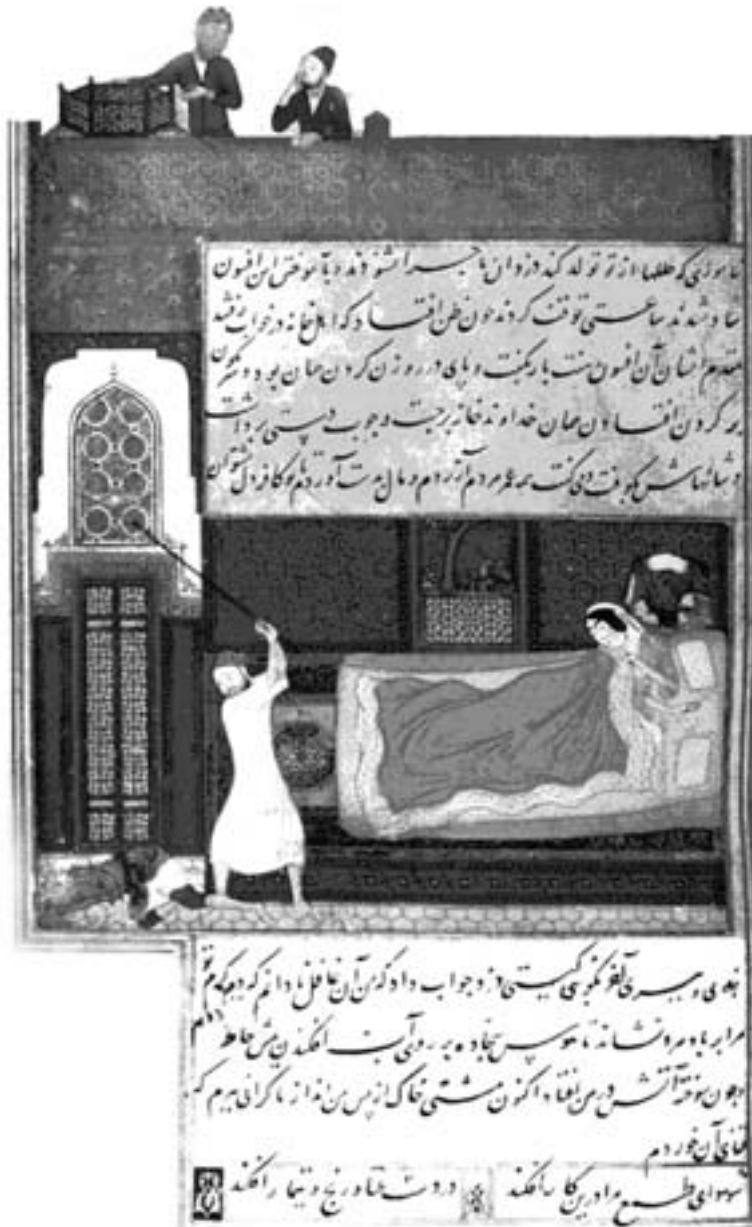 که خللها از تو تولد کند دزدان ماجرا بشنودند و بآموختن این افسون
شاد شدند ساعتی توقف کردند چون ظن افتاد که اهل خانه در خواب رفتند
مقدم ایشان آن افسون هفت بار بگفت و پای در روزن کردن همان بود و سرنگون
بر گردن افتادن همان خداوند خانه برجست و چوب دستی برداشت
و شانهاش بکوفت و می گفت همه عمر مردم آزردم و مال بدست آوردم تا تو کافر دل
بندی و ببری آخر نگویی کیستی دزد جواب داد که من آن غافل نادانم که دم گرم تو
مرا بر باد سرد نشاند تا هوس سجاده بر روی آب افکندن پیش خاطر آوردم
و چون سوخته آتش در من افتاد اکنون مشتی خاک از پس من انداز تا گرانی ببرم که
قفای آن خوردم
سودای طمع مرا درین کار افکند در دست عنا و رنج و تیمار افکند